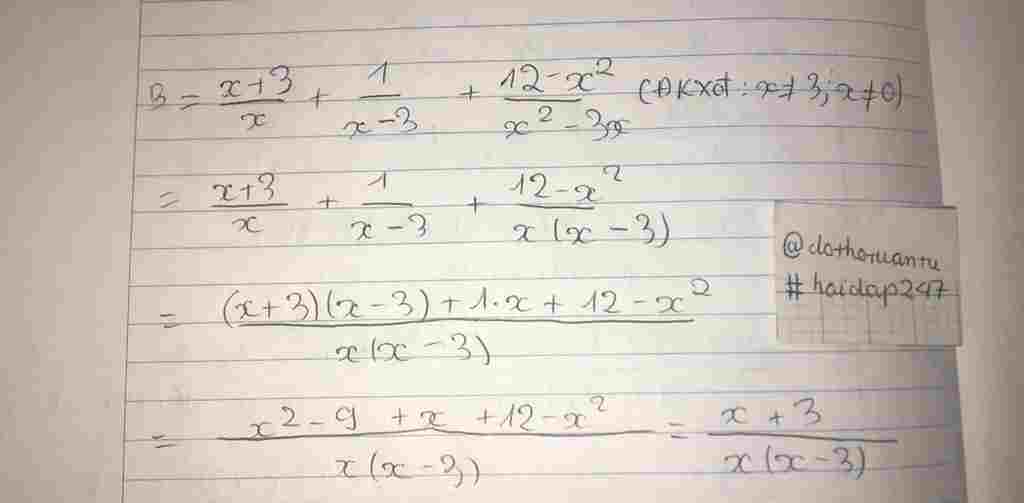 B = \frac{x+3}{x} + \frac{1}{x-3} + \frac{12-x^2}{x^2-3x} (ĐKXĐ: x≠3; x≠0)
= \frac{x+3}{x} + \frac{1}{x-3} + \frac{12-x^2}{x(x-3)}
= \frac{(x+3)(x-3)+1.x+12-x^2}{x(x-3)}
= \frac{x^2-9+x+12-x^2}{x(x-3)} = \frac{x+3}{x(x-3)}
@dothotuantu
#hoidap247